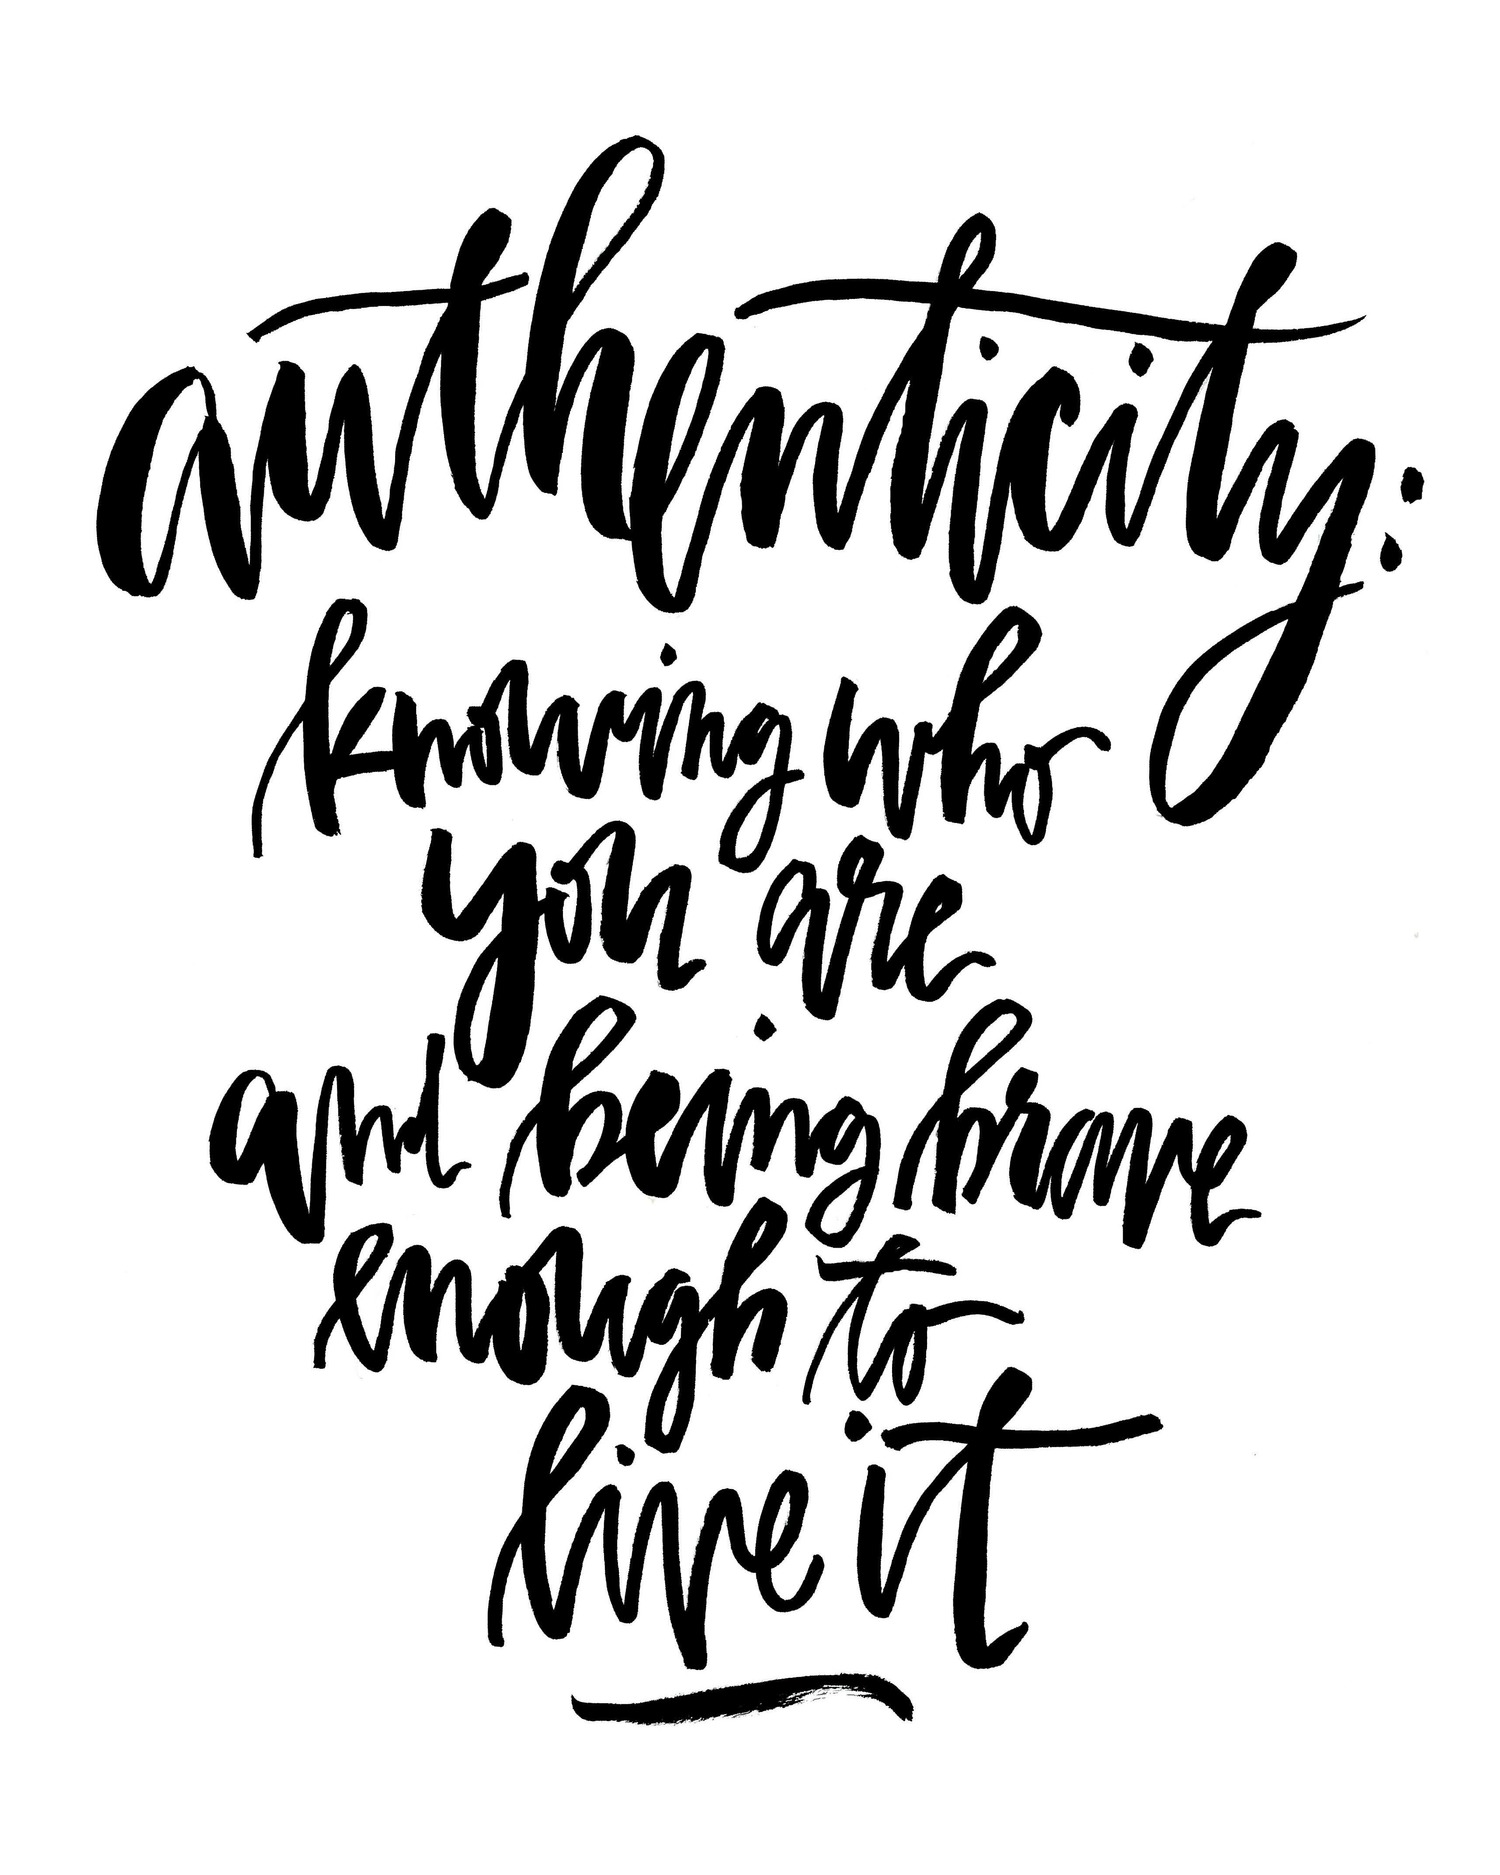 authenticity:
knowing who
you are
and being brave
enough to
live it